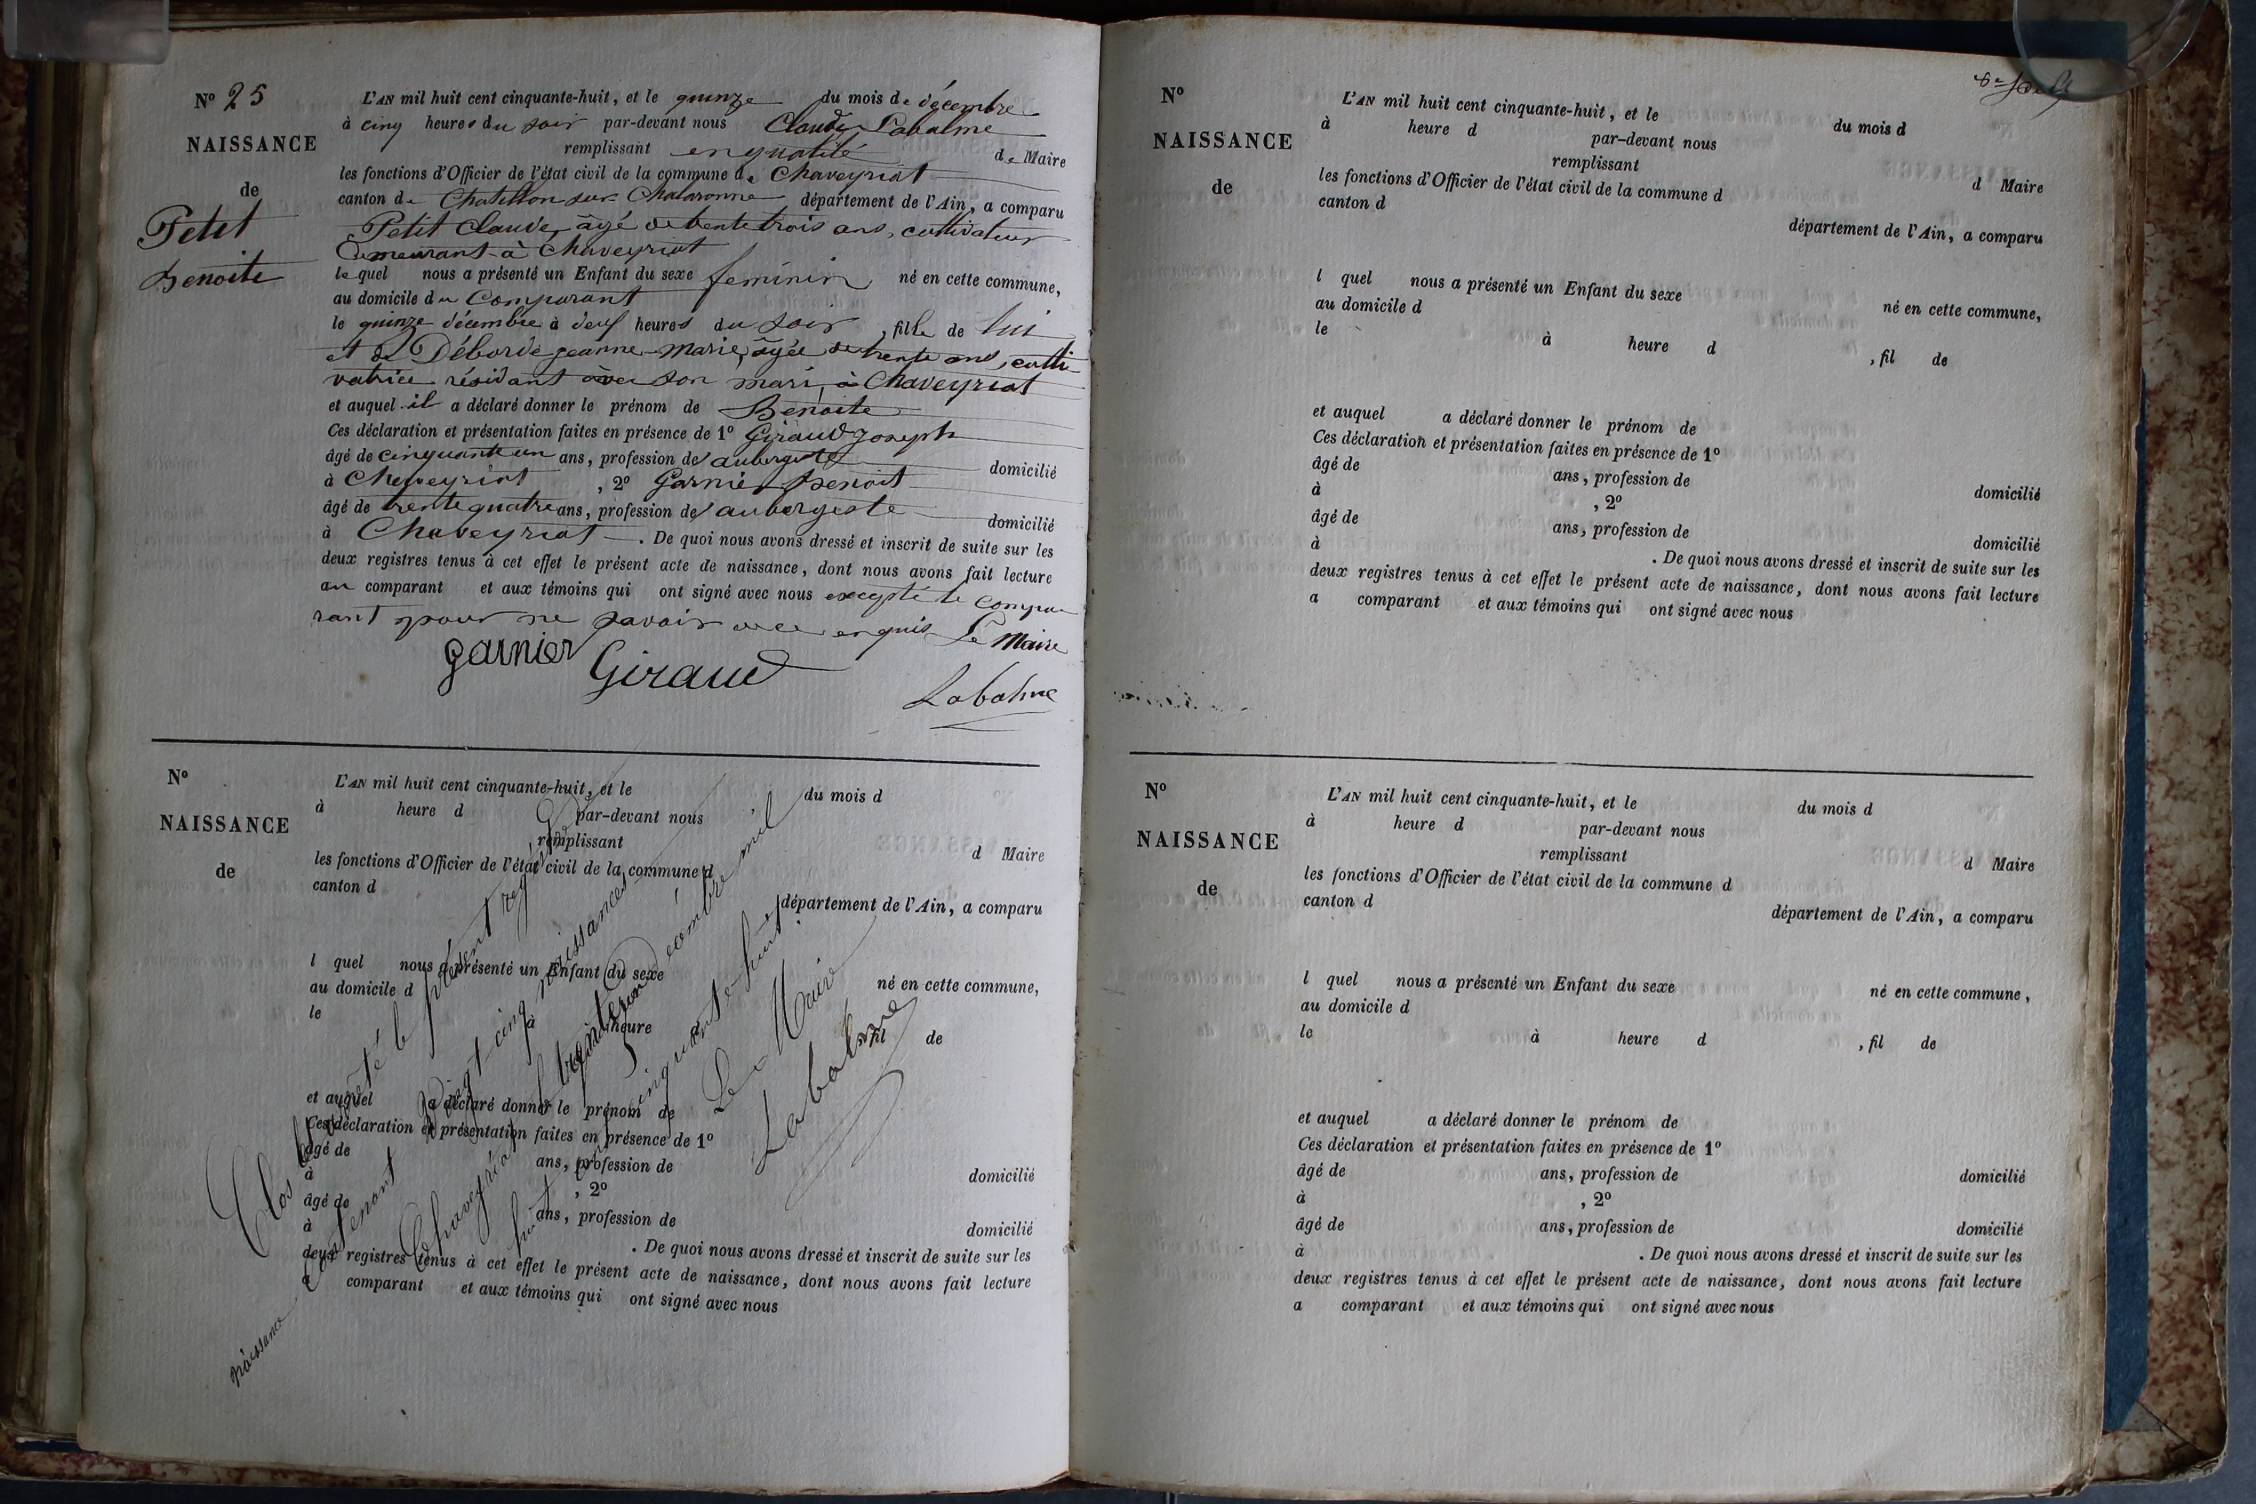 N° 25
NAISSANCE
de
Petit
Benoite
L'AN mil huit cent cinquante-huit, et le quinze du mois de décembre
à cinq heures du soir par-devant nous Claude Labalme
remplissant en qualité de Maire
les fonctions d'Officier de l'état civil de la commune de Chaveyriat
canton de Chatillon sur Chalaronne département de l'Ain, a comparu
Petit Claude, âgé de trente trois ans, cultivateur
Demeurant à Chaveyriat
lequel nous a présenté un Enfant du sexe feminin né en cette commune,
au domicile du Comparant
le quinze décembre à deux heures du soir, fille de lui
et de Déborde jeanne-Marie, âgée de trente ans, culti-
vatrice résidant avec son mari, à Chaveyriat
et auquel il a déclaré donner le prénom de Benoite
Ces déclaration et présentation faites en présence de 1° Giraud joseph
âgé de cinquante un ans, profession de aubergiste domicilié
à Chaveyriat, 2° Garnier Benoit
âgé de trente quatre ans, profession de aubergiste domicilié
à Chaveyriat. De quoi nous avons dressé et inscrit de suite sur les
deux registres tenus à cet effet le présent acte de naissance, dont nous avons fait lecture
au comparant et aux témoins qui ont signé avec nous excepté le compa
rant pour ne savoir de ce enquis Le Maire
garnier Giraud
Labalme
N°
NAISSANCE
de
L'AN mil huit cent cinquante-huit, et le du mois d
à heure d par-devant nous
remplissant d Maire
les fonctions d'Officier de l'état civil de la commune d
canton d département de l'Ain, a comparu
l quel nous a présenté un Enfant du sexe né en cette commune,
au domicile d
le à heure fil de
et auquel a déclaré donner le prénom de
Ces déclaration et présentation faites en présence de 1°
âgé de ans, profession de domicilié
à , 2°
âgé de ans, profession de domicilié
à . De quoi nous avons dressé et inscrit de suite sur les
deux registres tenus à cet effet le présent acte de naissance, dont nous avons fait lecture
a comparant et aux témoins qui ont signé avec nous
Clos et arrêté le présent registre de
naissance Contenant vingt-cinq naissances
Chaveyriat le trente un Décembre mil
huit cent cinquante-huit
Le Maire
Labalme
N°
NAISSANCE
de
L'AN mil huit cent cinquante-huit, et le du mois d
à heure d par-devant nous
remplissant d Maire
les fonctions d'Officier de l'état civil de la commune d
canton d département de l'Ain, a comparu
l quel nous a présenté un Enfant du sexe né en cette commune,
au domicile d
le à heure d , fil de
et auquel a déclaré donner le prénom de
Ces déclaration et présentation faites en présence de 1°
âgé de ans, profession de domicilié
à , 2°
âgé de ans, profession de domicilié
à . De quoi nous avons dressé et inscrit de suite sur les
deux registres tenus à cet effet le présent acte de naissance, dont nous avons fait lecture
a comparant et aux témoins qui ont signé avec nous
N°
NAISSANCE
de
L'AN mil huit cent cinquante-huit, et le du mois d
à heure d par-devant nous
remplissant d Maire
les fonctions d'Officier de l'état civil de la commune d
canton d département de l'Ain, a comparu
l quel nous a présenté un Enfant du sexe né en cette commune,
au domicile d
le à heure d , fil de
et auquel a déclaré donner le prénom de
Ces déclaration et présentation faites en présence de 1°
âgé de ans, profession de domicilié
à , 2°
âgé de ans, profession de domicilié
à . De quoi nous avons dressé et inscrit de suite sur les
deux registres tenus à cet effet le présent acte de naissance, dont nous avons fait lecture
a comparant et aux témoins qui ont signé avec nous